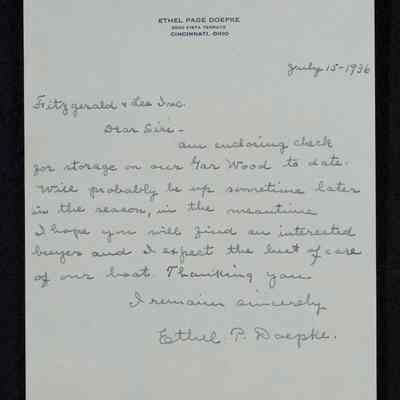 ETHEL PAGE DOEPKE
VISTA TERRACE
CINCINNATI, OHIO
July 15-1936
Fitzgerald & Lee Inc.
Dear Sirs-
am enclosing check
for storage on our Gar Wood to date.
Will probably be up sometime later
in the season, in the meantime
I hope you will find an interested
buyer and I expect the best of care
of our boat. Thanking you
I remain sincerely
Ethel P. Doepke.